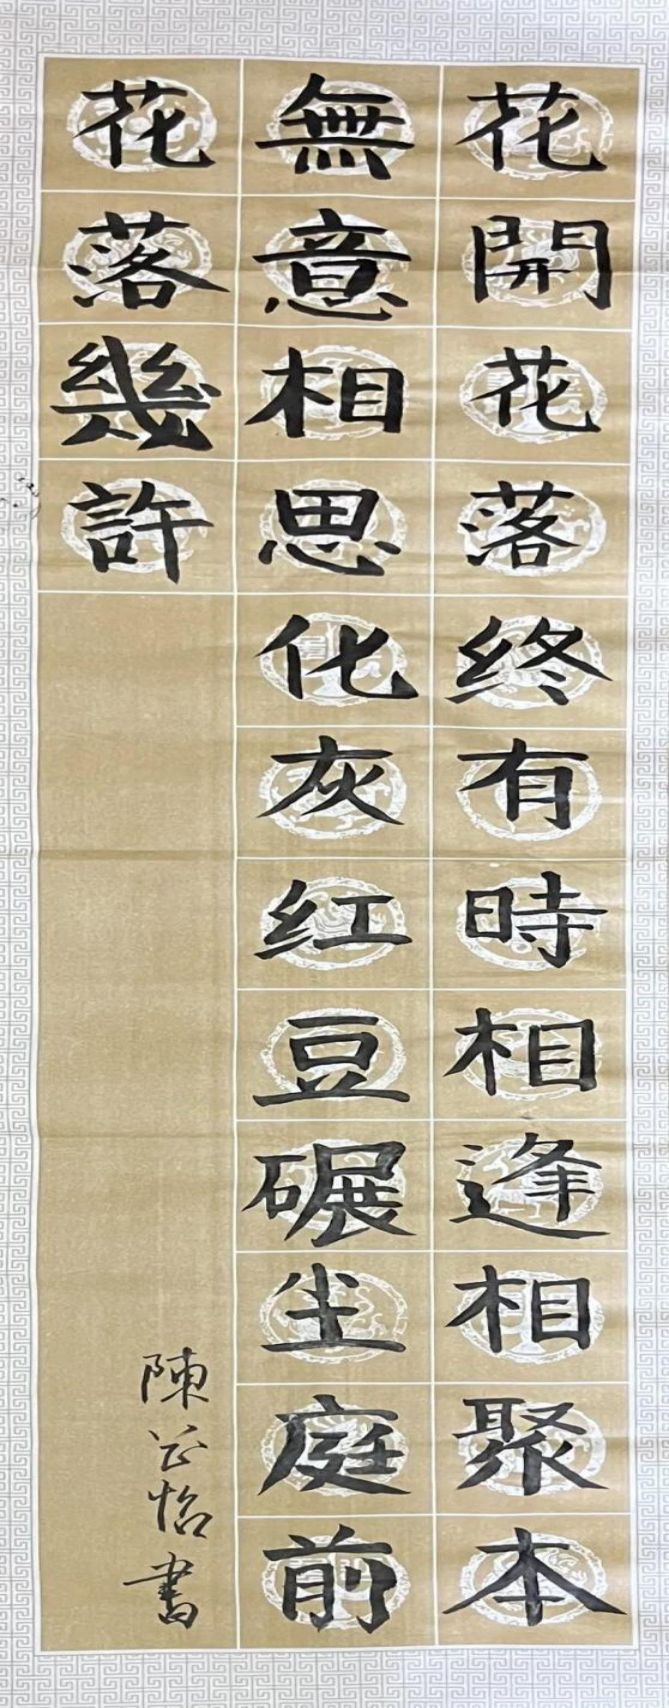 花開花落终有時相逢相聚本
無意相思化灰红豆碾尘庭前
花落幾許
陳
怡書